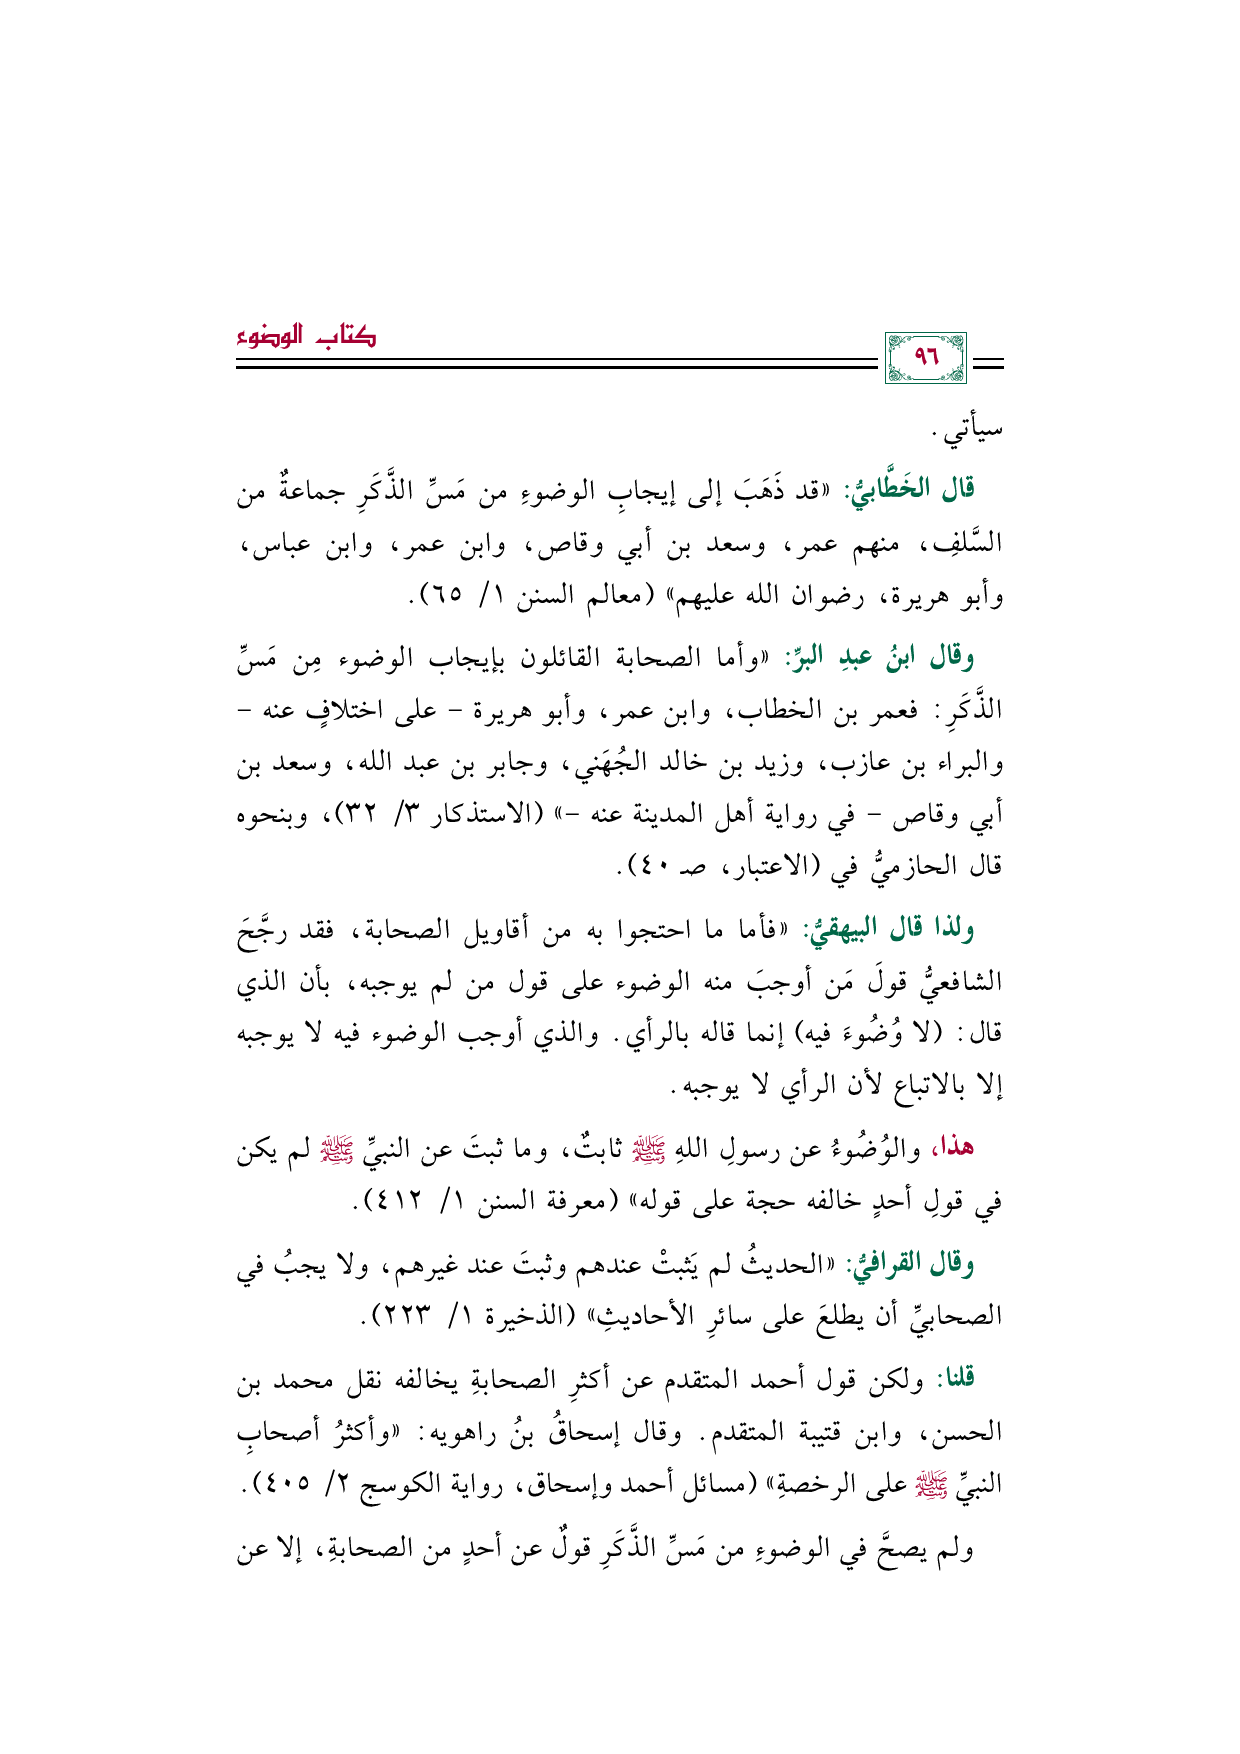 كتاب الوضوء
٩٦
سيأتي.
قال الخَطَّابيُّ: «قد ذَهَبَ إلى إيجابِ الوضوءِ من مَسِّ الذَّكَرِ جماعةٌ من
السَّلفِ، منهم عمر، وسعد بن أبي وقاص، وابن عمر، وابن عباس،
وأبو هريرة، رضوان الله عليهم» (معالم السنن ١/ ٦٥).
وقال ابنُ عبدِ البرِّ: «وأما الصحابة القائلون بإيجاب الوضوء مِن مَسِّ
الذَّكَرِ: فعمر بن الخطاب، وابن عمر، وأبو هريرة - على اختلافٍ عنه -
والبراء بن عازب، وزيد بن خالد الجُهَني، وجابر بن عبد الله، وسعد بن
أبي وقاص - في رواية أهل المدينة عنه -» (الاستذكار ٣/ ٣٢)، وبنحوه
قال الحازميُّ في (الاعتبار، صـ ٤٠).
ولذا قال البيهقيُّ: «فأما ما احتجوا به من أقاويل الصحابة، فقد رجَّحَ
الشافعيُّ قولَ مَن أوجبَ منه الوضوء على قول من لم يوجبه، بأن الذي
قال: (لا وُضُوءَ فيه) إنما قاله بالرأي. والذي أوجب الوضوء فيه لا يوجبه
إلا بالاتباع لأن الرأي لا يوجبه.
هذا، والوُضُوءُ عن رسولِ اللهِ ﷺ ثابتٌ، وما ثبتَ عن النبيِّ ﷺ لم يكن
في قولِ أحدٍ خالفه حجة على قوله» (معرفة السنن ١/ ٤١٢).
وقال القرافيُّ: «الحديثُ لم يَثبتْ عندهم وثبتَ عند غيرهم، ولا يجبُ في
الصحابيِّ أن يطلعَ على سائرِ الأحاديثِ» (الذخيرة ١/ ٢٢٣).
قلنا: ولكن قول أحمد المتقدم عن أكثرِ الصحابةِ يخالفه نقل محمد بن
الحسن، وابن قتيبة المتقدم. وقال إسحاقُ بنُ راهويه: «وأكثرُ أصحابِ
النبيِّ ﷺ على الرخصةِ» (مسائل أحمد وإسحاق، رواية الكوسج ٢/ ٤٠٥).
ولم يصحَّ في الوضوءِ من مَسِّ الذَّكَرِ قولٌ عن أحدٍ من الصحابةِ، إلا عن